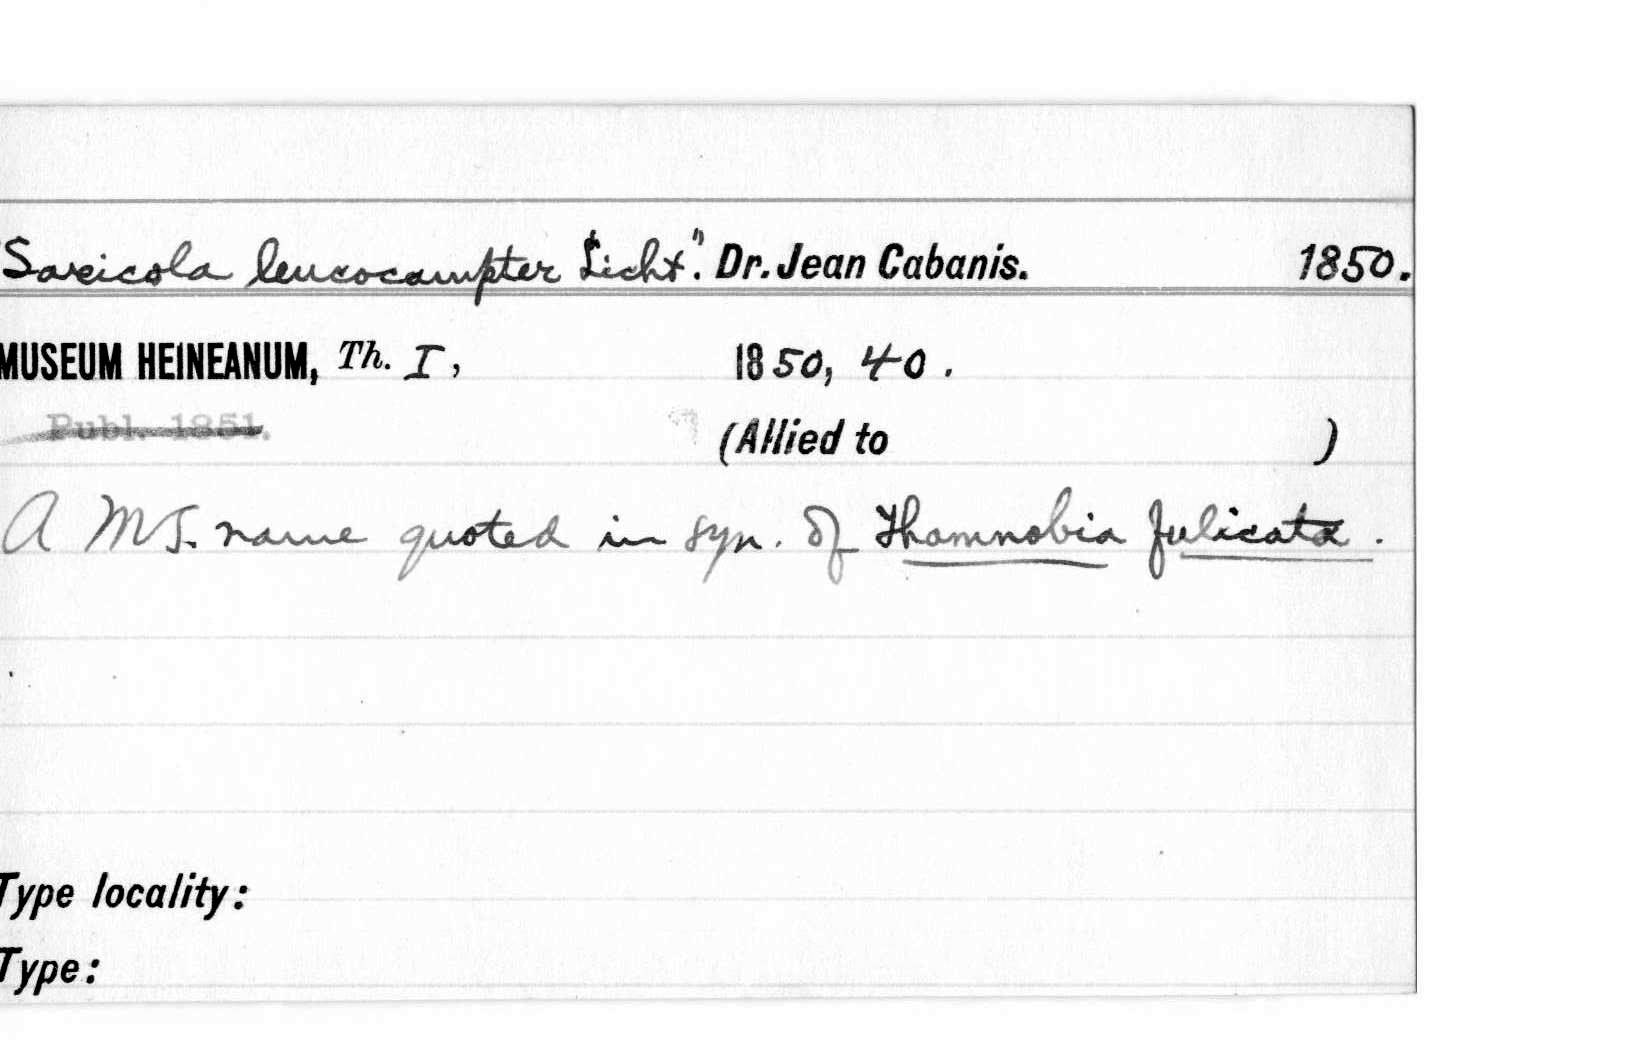 "Saxicola leucocampter Licht". Dr. Jean Cabanis. 1850.
MUSEUM HEINEANUM, Th. I, 1850, 40.
Publ. 1851.
(Allied to )
A MS. name quoted in syn. of Thamnobia fulicata.
Type locality:
Type: